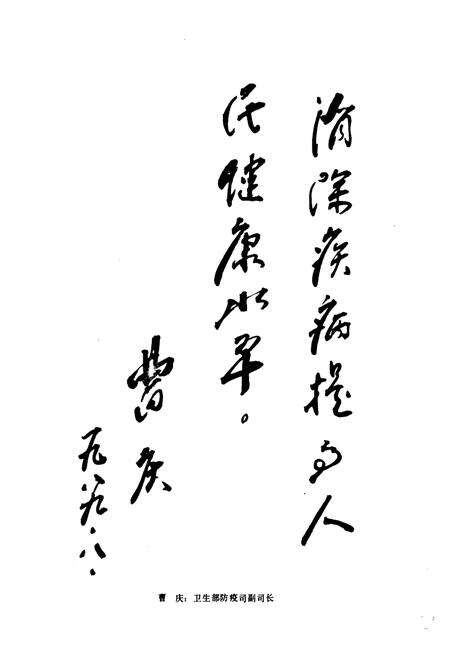 消除疾病提高人
民健康水平。
曹庆
一九八九.八.
曹 庆：卫生部防疫司副司长